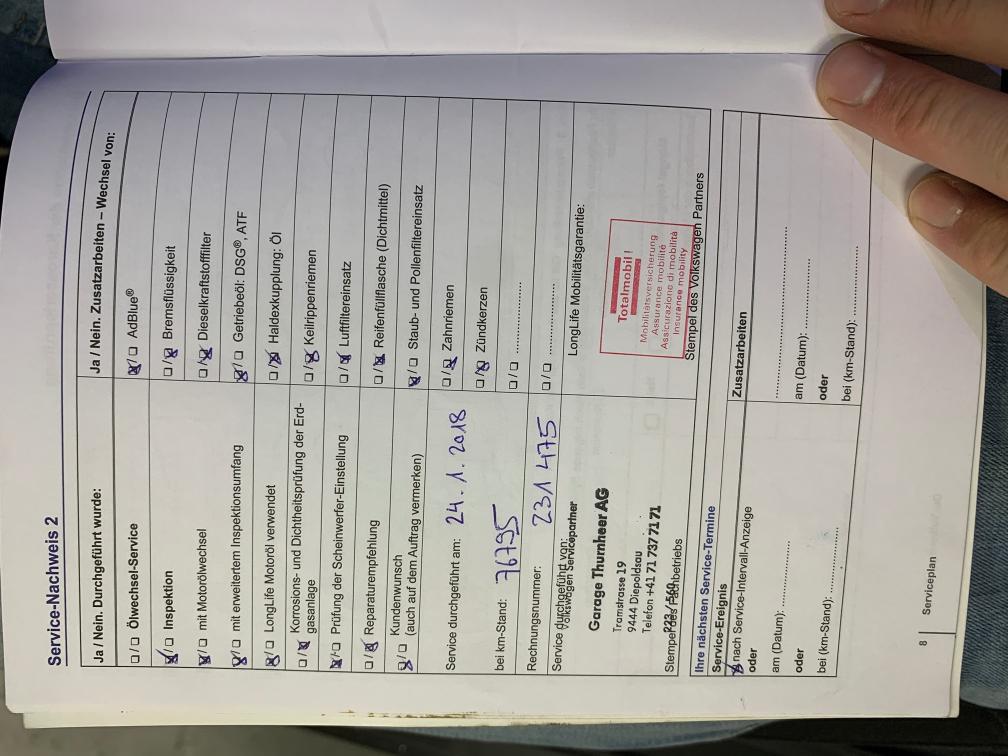 Service-Nachweis 2
Ja / Nein. Durchgeführt wurde:
☐ / ☐ Ölwechsel-Service
☒ / ☐ Inspektion
☒ / ☐ mit Motorölwechsel
☒ / ☐ mit erweitertem Inspektionsumfang
☒ / ☐ LongLife Motoröl verwendet
☐ / ☒ Korrosions- und Dichtheitsprüfung der Erd-
gasanlage
☒ / ☐ Prüfung der Scheinwerfer-Einstellung
☐ / ☒ Reparaturempfehlung
☒ / ☐ Kundenwunsch
(auch auf dem Auftrag vermerken)
Service durchgeführt am: 24. 1. 2018
bei km-Stand: 76795
Rechnungsnummer: 231 475
Service durchgeführt von:
Volkswagen Servicepartner
Garage Thurnheer AG
Tramstrasse 19
9444 Diepoldsau
Telefon +41 71 737 71 71
223 / 560
Stempel des Fachbetriebs
Ja / Nein. Zusatzarbeiten – Wechsel von:
☒ / ☐ AdBlue®
☐ / ☒ Bremsflüssigkeit
☐ / ☒ Dieselkraftstofffilter
☒ / ☐ Getriebeöl: DSG®, ATF
☐ / ☒ Haldexkupplung: Öl
☐ / ☒ Keilrippenriemen
☐ / ☒ Luftfiltereinsatz
☐ / ☒ Reifenfüllflasche (Dichtmittel)
☒ / ☐ Staub- und Pollenfiltereinsatz
☐ / ☒ Zahnriemen
☐ / ☒ Zündkerzen
☐ / ☐ ....................
☐ / ☐ ....................
LongLife Mobilitätsgarantie:
Totalmobil!
Mobilitätsversicherung
Assurance mobilité
Assicurazione di mobilità
Insurance mobility
Stempel des Volkswagen Partners
Ihre nächsten Service-Termine
Service-Ereignis
☒ nach Service-Intervall-Anzeige
oder
am (Datum): ....................
oder
bei (km-Stand): ....................
Zusatzarbeiten
....................
am (Datum): ....................
oder
bei (km-Stand): ....................
8 | Serviceplan